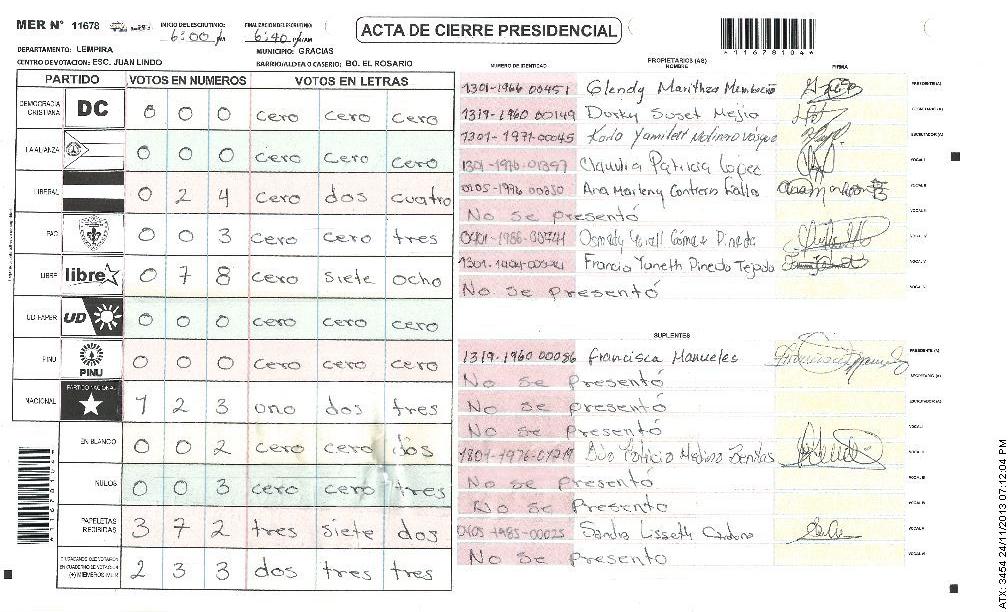 MER N° 11678
INICIO DEL ESCRUTINIO: 6:00 pm
FINALIZACION DEL ESCRUTINIO: 6:40 pm
ACTA DE CIERRE PRESIDENCIAL
*11678104*
DEPARTAMENTO: LEMPIRA
MUNICIPIO: GRACIAS
CENTRO DE VOTACION: ESC. JUAN LINDO
BARRIO/ALDEA O CASERIO: BO. EL ROSARIO
PARTIDO VOTOS EN NUMEROS VOTOS EN LETRAS
DEMOCRACIA CRISTIANA DC 0 0 0 cero cero cero
LA ALIANZA 0 0 0 cero cero cero
LIBERAL 0 2 4 cero dos cuatro
PAC 0 0 3 cero cero tres
LIBRE libre 0 7 8 cero siete ocho
UD FAPER UD 0 0 0 cero cero cero
PINU PINU 0 0 0 cero cero cero
NACIONAL PARTIDO NACIONAL 1 2 3 uno dos tres
EN BLANCO 0 0 2 cero cero dos
NULOS 0 0 3 cero cero tres
PAPELETAS RECIBIDAS 3 7 2 tres siete dos
CIUDADANOS QUE VOTARON EN CUADERNO DE VOTACION (+) MIEMBROS MER 2 3 3 dos tres tres
PROPIETARIOS (AS)
NUMERO DE IDENTIDAD NOMBRE FIRMA
1301-1966 00451 Glendy Marithza PRESIDENTE (A)
1319-1960 00149 Dorky Suset Mejia SECRETARIO (A)
1301-1971-00045 Karla Yamileth Molinero Vasque ESCRUTADOR (A)
1301-1976-01397 Claudia Patricia Lopez VOCAL I
0105-1976 00230 Ana Marleny Contreras VOCAL II
No se presentó VOCAL III
0401-1988-00741 Osmady Gómez Pineda VOCAL IV
Francis Yaneth Pineda Tejada VOCAL V
No se presentó VOCAL VI
SUPLENTES
1319-1960 00086 Francisca Manueles PRESIDENTE (A)
No se presentó SECRETARIO (A)
No se presentó ESCRUTADOR (A)
No se presentó VOCAL I
Patricia Medina Benitas VOCAL II
No se presentó VOCAL III
No se presentó VOCAL IV
0405-1985-00025 Sandra Lisseth VOCAL V
No se presentó VOCAL VI
ATX: 3454 24/11/2013 07:12:04 PM